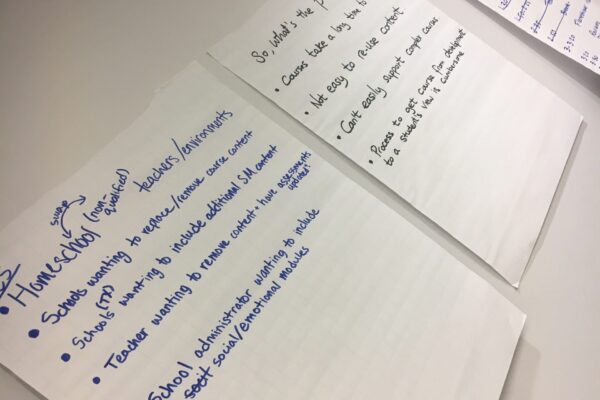 So, what's the
• Courses take a long time to
• Not easy to re-use content
• Can't easily support complex courses
• Process to get course from development
to a student's view is cumbersome
swap
• Homeschool (non-
qualified) teachers/environments
• Schools wanting to replace/remove course content
• Schools (TP) wanting to include additional SM content
• Teacher wanting to remove content + have assessments
updated!
School administrator wanting to include
social/emotional modules